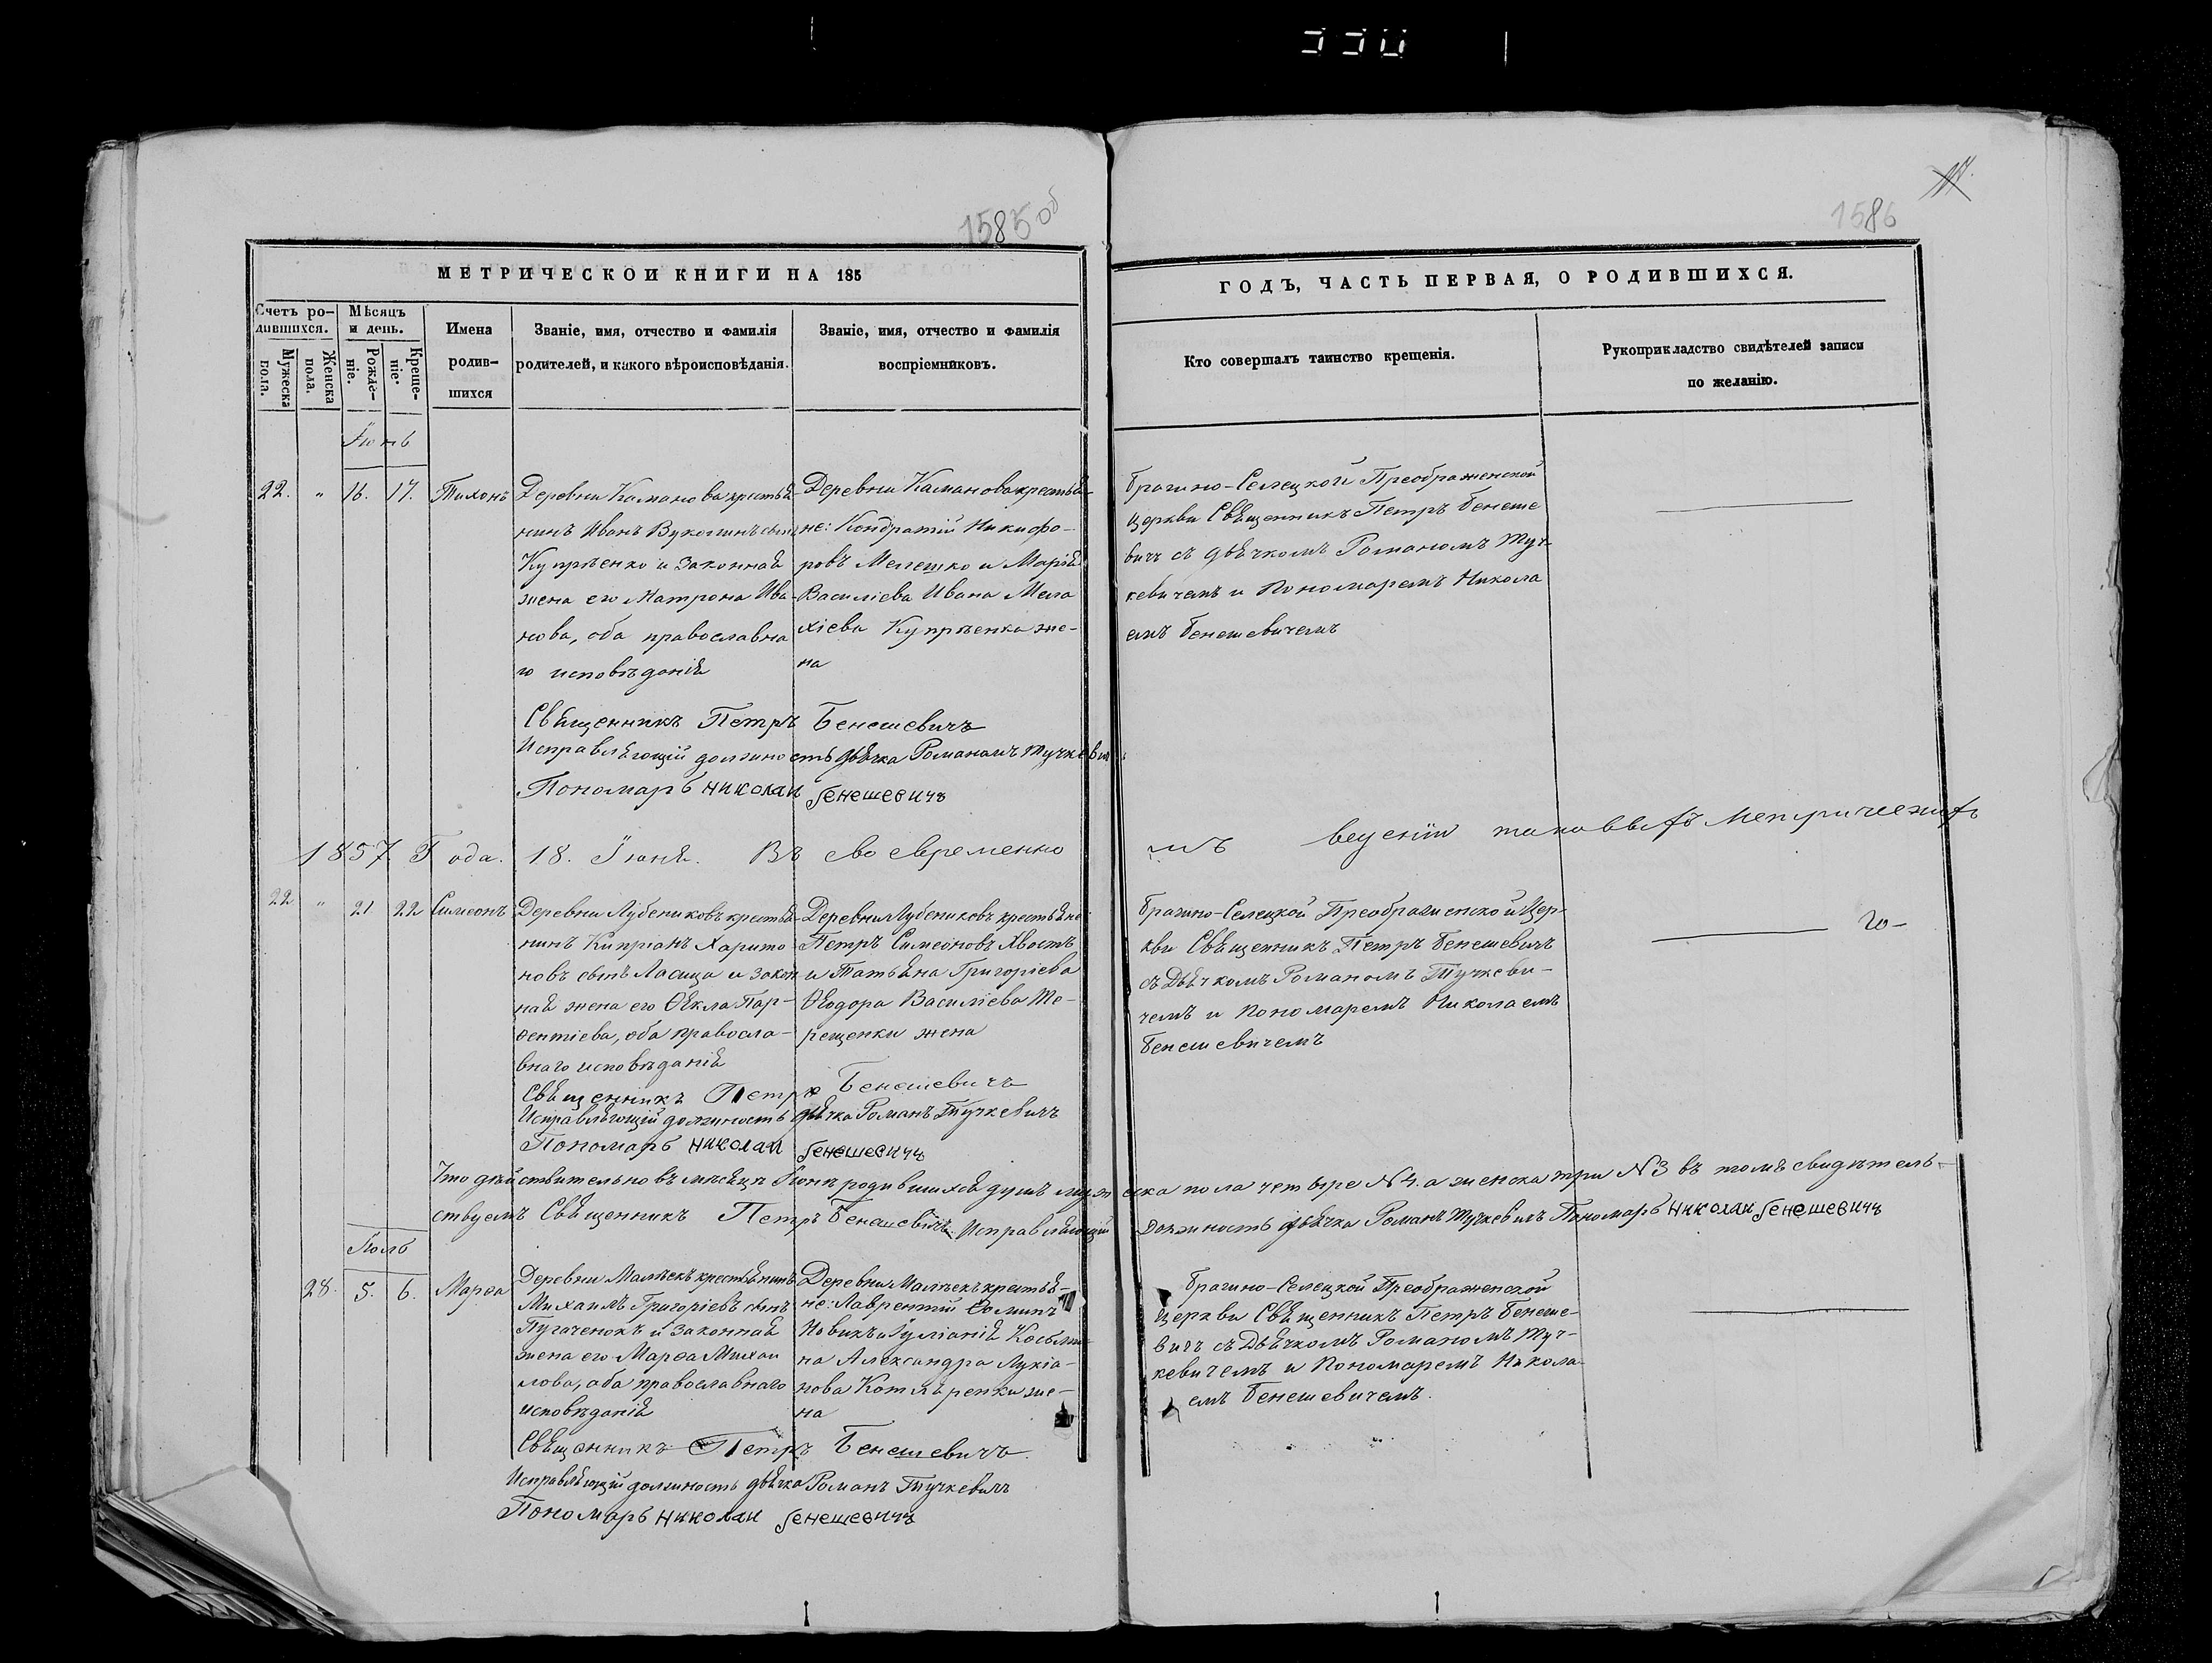 1585 об
1586
МЕТРИЧЕСКОИ КНИГИ НА 185
ГОДЪ, ЧАСТЬ ПЕРВАЯ, О РОДИВШИХСЯ.
Счетъ ро-
дившихся.
Мужеска
пола.
Женска
пола.
Мѣсяцъ
и день.
Рожде-
ніе.
Креще-
ніе.
Имена
родив-
шихся
Званіе, имя, отчество и фамилія
родителей, и какого вѣроисповѣданія.
Званіе, имя, отчество и фамилія
воспріемниковъ.
Кто совершалъ таинство крещенія.
Рукоприкладство свидѣтелей записи
по желанію.
Іюнь
22. " 16. 17. Тихонъ
Деревни Каманова крестья-
нинъ Иванъ Вуколинъ сынъ
Купрѣенко и законная
жена его Матрона Ива-
нова, оба православна
го исповѣданія
Деревни Каманова крестья-
не: Кондратій Никифо-
ровъ Мелешко и Марія
Василіева Ивана Мала
хіева Купрѣенка же-
на
Брагино-Селецкой Преображенской
церкви Священникъ Петръ Бенеше
вичъ съ дьячкомъ Романомъ Туч-
кевичемъ и Пономаремъ Никола
емъ Бенешевичемъ
Священникъ Петръ Бенешевичъ
Исправляющій должность дьячка Романъ Тучкевич
Пономарь Николаи Бенешевичъ
1857 Года. 18. Іюня. Въ свовременно
мъ ведении таковыхъ метрическихъ
22 " 21 22 Симеонъ
Деревни Лубениковъ крестья-
нинъ Кипріанъ Харито
новъ сынъ Ласица и закон
ная жена его Ѳекла Пар-
ѳентіева, оба правосла-
внаго исповѣданія
Деревни Лубениковъ крестьяне
Петръ Симеоновъ Хвостъ
и Татьяна Григоріева
Ѳеодора Василіева Те-
рещенки жена
Брагино-Селецкой Преображенской Цер-
кви Священникъ Петръ Бенешевичъ
съ Дьячкомъ Романомъ Тучкеви-
чемъ и Пономаремъ Николаемъ
Бенешевичемъ
Священникъ Петръ Бенешевичъ
Исправляющій должность дьячка Романъ Тучкевичъ
Пономарь Николаи Бенешевичъ
Что дѣйствительно въ мѣсяцѣ Іюнѣ родившихся душъ мужеска пола четыре №4. а женска три №3 въ томъ свидѣтель-
ствуемъ Священникъ Петръ Бенешевичъ Исправляющій Должность дьячка Романъ Тучкевичъ Пономарь Николаи Бенешевичъ
Іюль
28. 5. 6. Марѳа
Деревни Малѣекъ крестьянинъ
Михаилъ Григоріевъ сынъ
Пугаченокъ и законная
жена его Марѳа Михаи
лова, оба православнаго
исповѣданія
Деревни Малѣекъ крестья-
не: Лаврентій Ѳоминъ
Новикъ и Іуліанія Косьми-
на Александра Лукіа-
нова Котляренки же-
на
Брагино-Селецкой Преображенской
церкви Священникъ Петръ Бенеше-
вичъ съ Дьячкомъ Романомъ Туч-
кевичемъ и Пономаремъ Никола-
емъ Бенешевичемъ.
Священникъ Петръ Бенешевичъ.
Исправляющій должность дьячка Романъ Тучкевичъ
Пономарь Николаи Бенешевичъ